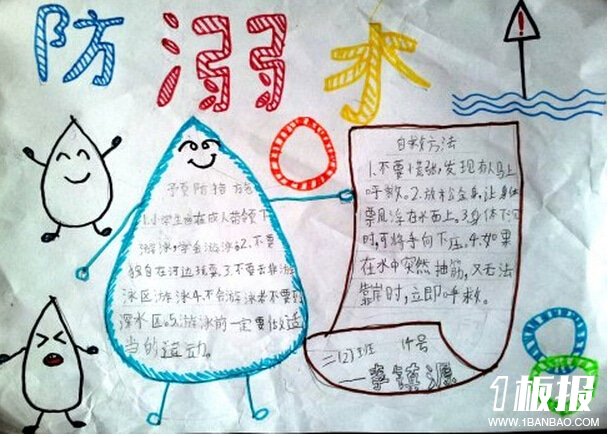 防溺水
预防措施
1.小学生应在成人带领下
游泳,学会游泳。2.不要
独自在河边玩耍。3.不要去非游
泳区游泳。4.不会游泳者不要到
深水区。5.游泳前一定要做适
当的运动。
自救方法
1.不要慌张,发现办马上
呼救。2.放松全身,让身体
漂浮在水面上。3.身体下沉
时,可将手向下压。4.如果
在水中突然抽筋,又无法
靠岸时,立即呼救。
二(2)班 14号
李镇源
1板报
WWW.1BANBAO.COM